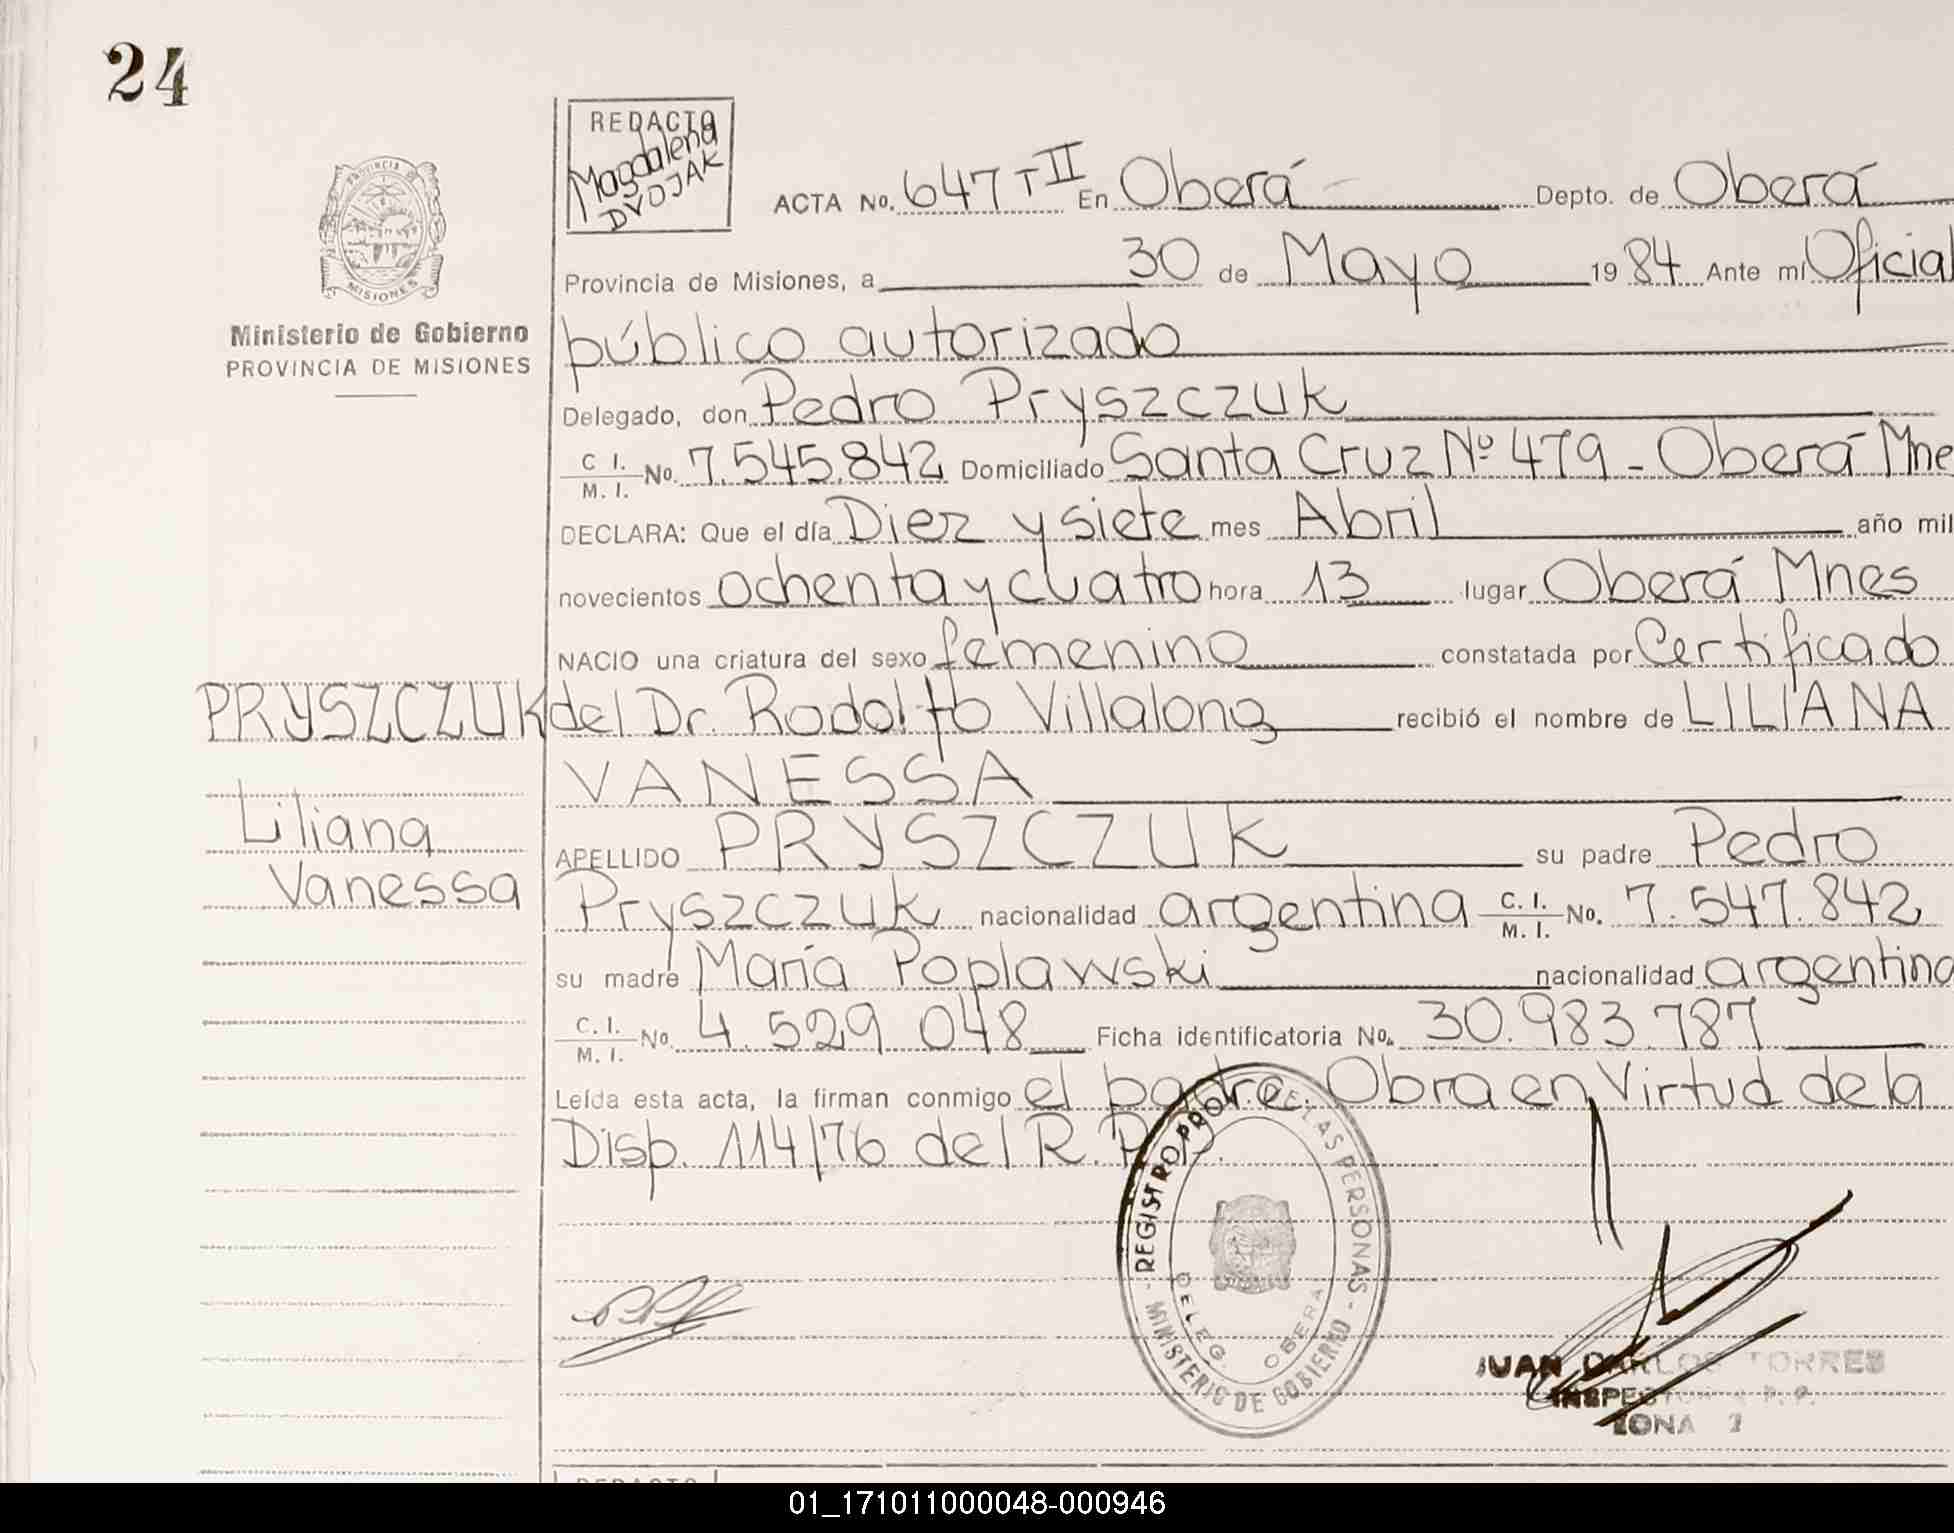 24
REDACTO
Magdalena
DVOJAK
PROVINCIA DE
MISIONES
Ministerio de Gobierno
PROVINCIA DE MISIONES
ACTA No. 647 T II En Oberá Depto. de Oberá
Provincia de Misiones, a 30 de Mayo 19 84 Ante mí Oficial
público autorizado
Delegado, don Pedro Pryszczuk
C I. / M. I. No. 7.545.842 Domiciliado Santa Cruz Nº 479 - Oberá Mne
DECLARA: Que el día Diez y siete mes Abril año mil
novecientos ochenta y cuatro hora 13 lugar Oberá Mnes
NACIO una criatura del sexo femenino constatada por Certificado
del Dr. Rodolfo Villalong recibió el nombre de LILIANA
VANESSA
APELLIDO PRYSZCZUK su padre Pedro
Pryszczuk nacionalidad argentina C. I. / M. I. No. 7.547.842
su madre María Poplawski nacionalidad argentina
C. I. / M. I. No. 4.529 048 Ficha identificatoria No. 30.983.787
Leída esta acta, la firman conmigo el padre. Obra en Virtud de la
Disp. 114/76 del R.P.P.
PRYSZCZUK
Liliana
Vanessa
REGISTRO PROV. DE LAS PERSONAS
MINISTERIO DE GOBIERNO
DELEG. OBERA
JUAN CARLOS TORRES
INSPECTOR R. P. P.
ZONA 2
REDACTO
01_171011000048-000946